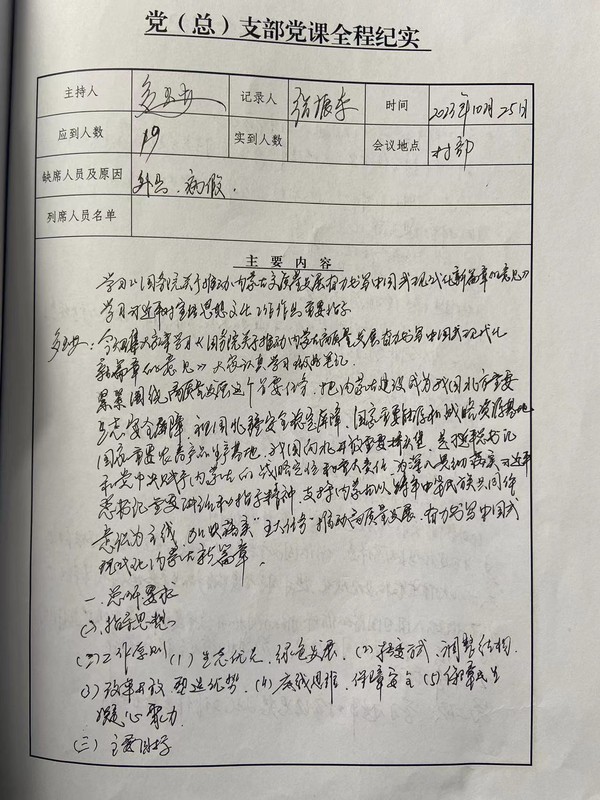 党（总）支部党课全程纪实
主持人 记录人 张振东 时间 2023年10月25日
应到人数 19 实到人数 会议地点 村部
缺席人员及原因 外出、病假.
列席人员名单
主要内容
学习《国务院关于推动内蒙古高质量发展奋力书写中国式现代化新篇章的意见》
学习习近平对宣传思想文化工作作出重要指示
今天召集大家来学习《国务院关于推动内蒙古高质量发展奋力书写中国式现代化
新篇章的意见》大家认真学习做好笔记.
紧紧围绕高质量发展这个首要任务，把内蒙古建设成为我国北方重要
生态安全屏障、祖国北疆安全稳定屏障，国家重要能源和战略资源基地
国家重要农畜产品生产基地，我国向北开放重要桥头堡，是习近平总书记
和党中央赋予内蒙古的战略定位和重大责任，为深入贯彻落实习近平
总书记重要讲话和指示精神，支持内蒙古以铸牢中华民族共同体
意识为主线，加快落实“五大任务”推动高质量发展，奋力书写中国式
现代化内蒙古新篇章.
一.总体要求
(一).指导思想
(二)工作原则 (1) 生态优先、绿色发展、(2) 转变方式、调整结构.
(3) 改革开放 塑造优势、(4) 底线思维、保障安全 (5) 保障民生
凝心聚力
(三) 主要目标